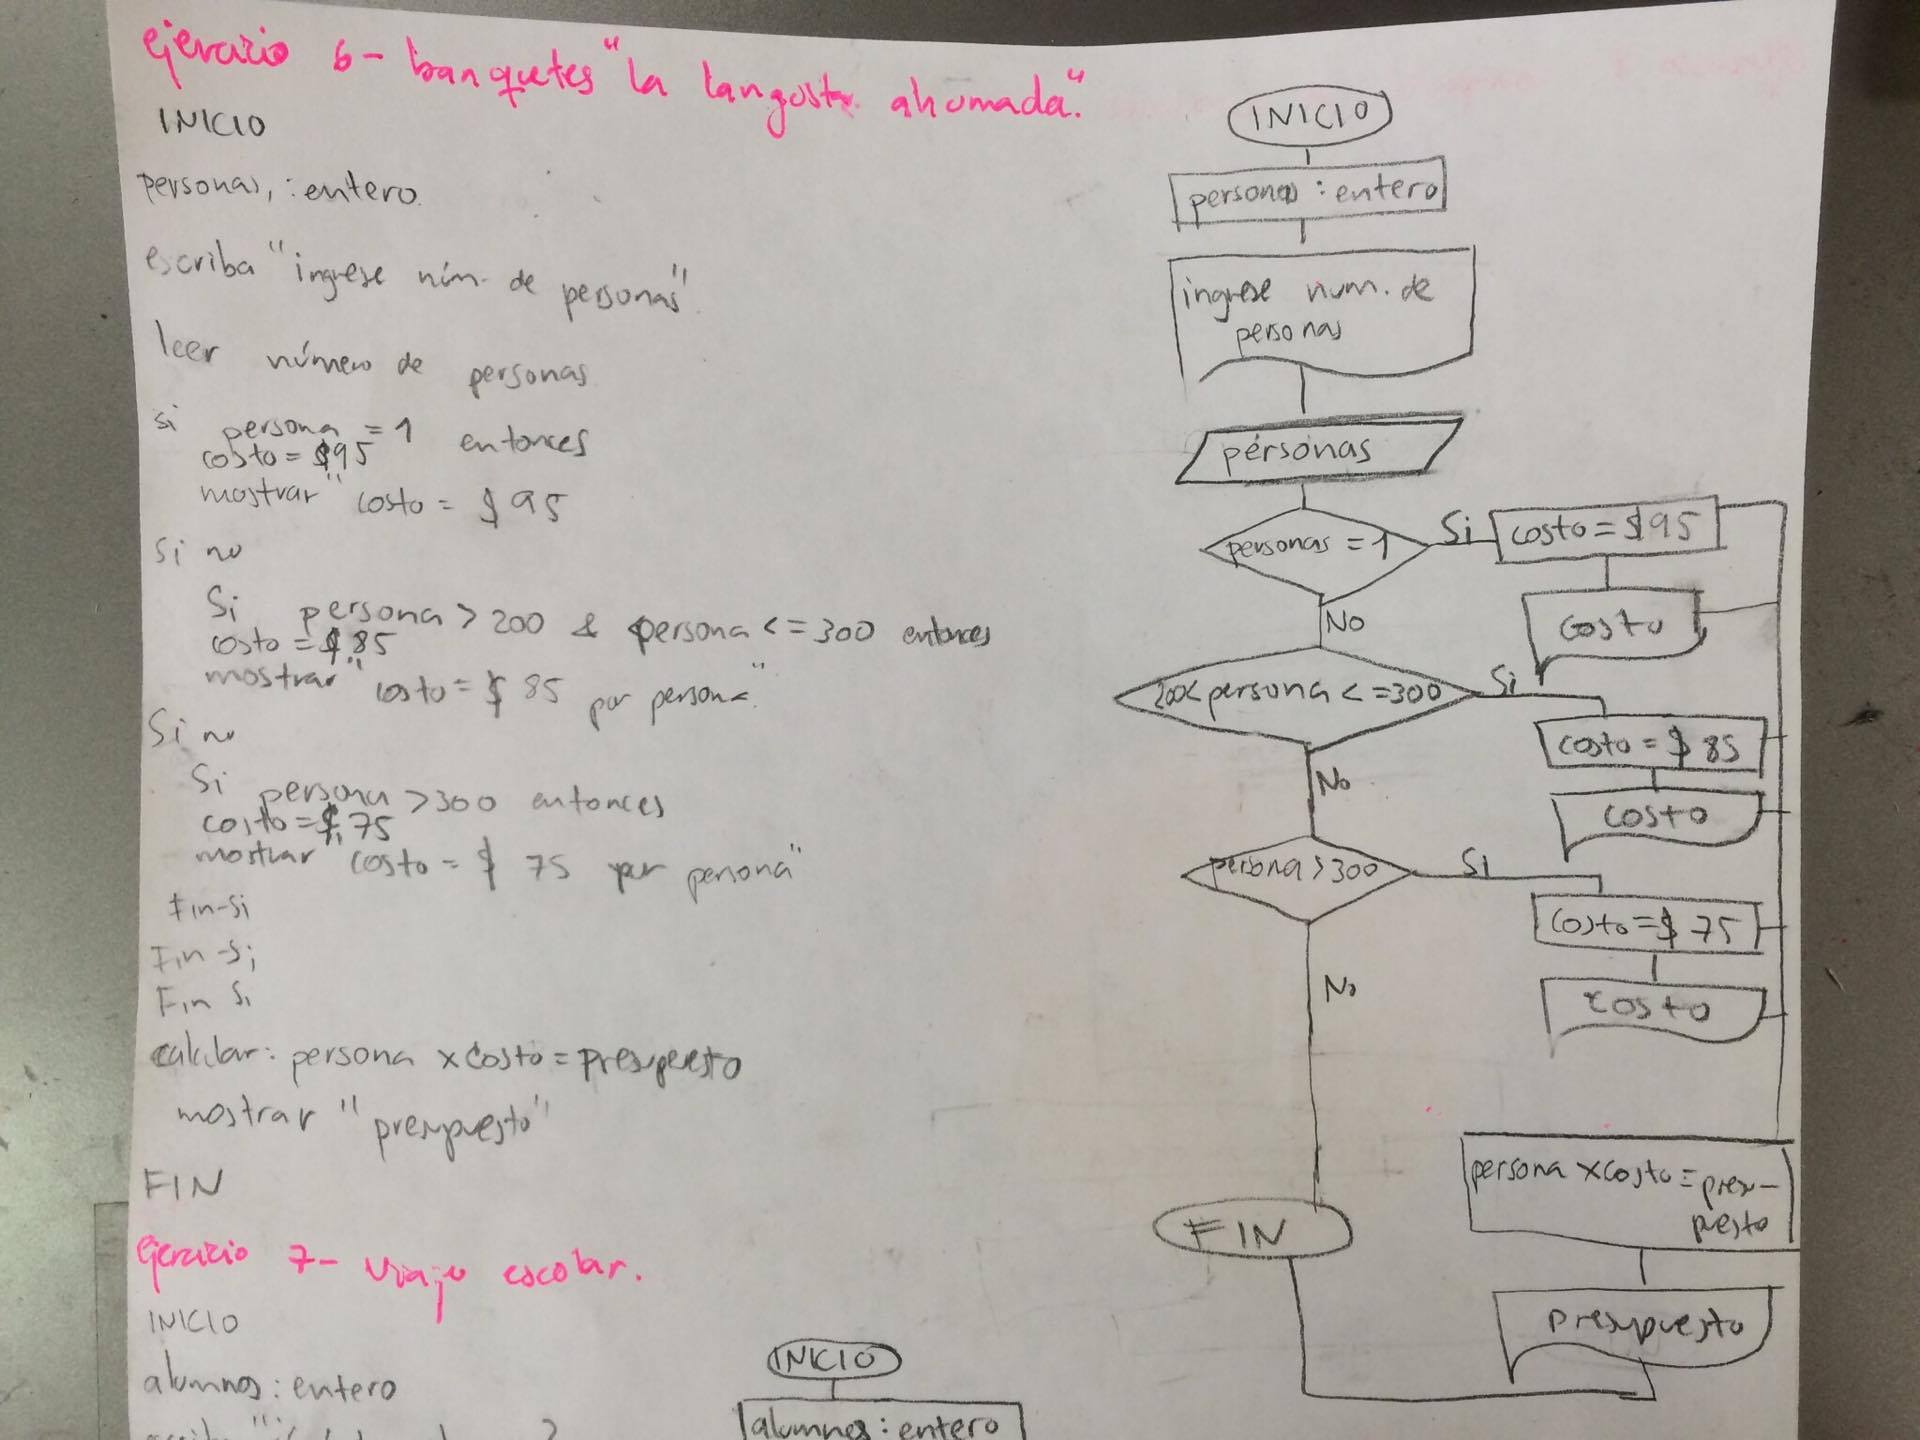 ejercicio 6- banquetes "la langosta ahumada."
INICIO
personas, : entero.
escriba "ingrese núm. de personas"
leer número de personas
si persona = 1 entonces
costo = $95
mostrar "costo = $95
Si no
Si persona > 200 & persona <= 300 entonces
costo = $85
mostrar "costo = $85 por persona."
Si no
Si persona > 300 entonces
costo = $75
mostrar "costo = $ 75 por persona"
Fin-si
Fin-si
Fin Si
calcular: persona x costo = presupuesto
mostrar "presupuesto"
FIN
INICIO
personas : entero
ingrese num. de
personas
personas
personas = 1
Si
costo = $95
costo
No
200< persona <= 300
Si
costo = $ 85
costo
No
persona > 300
Si
costo = $ 75
costo
No
persona x costo = presu-
puesto
presupuesto
FIN
ejercicio 7- viaje escolar.
INICIO
alumnos : entero
INICIO
alumnos : entero